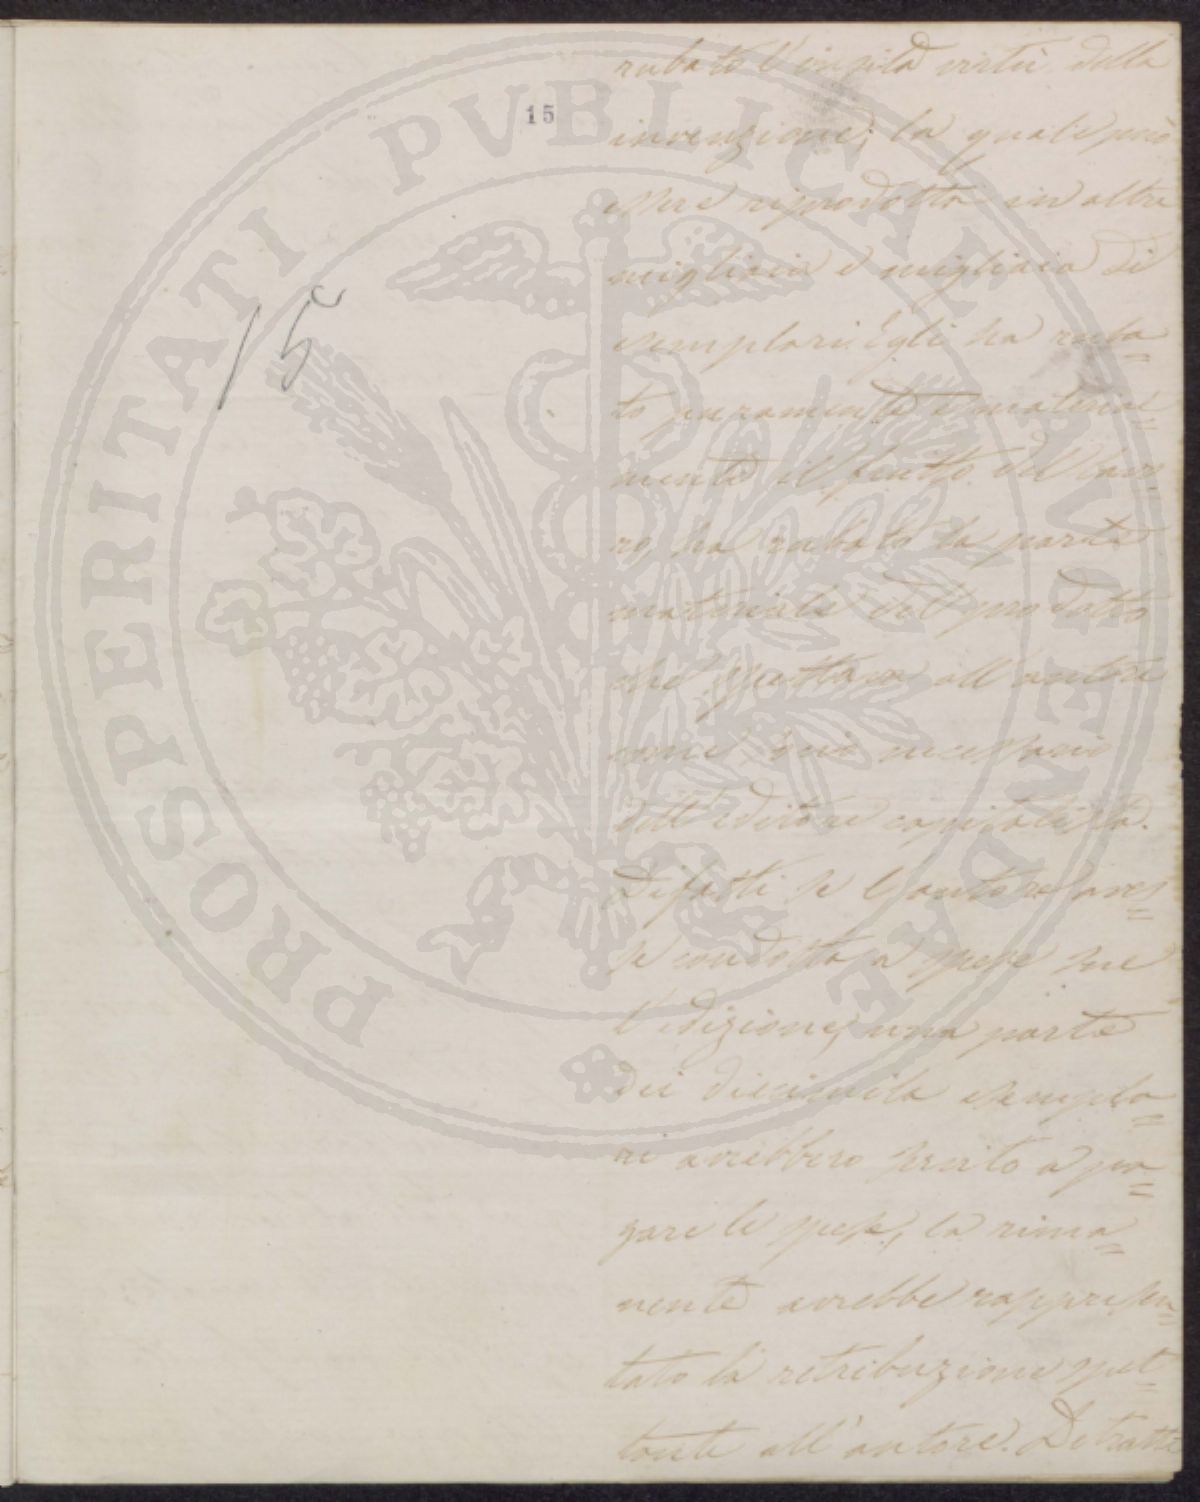 15
15
rubato l'insita virtù della
invenzione, la quale può
essere riprodotta in altre
migliaia e migliaia di
esemplari. Egli ha ruba=
to puramente e material=
mente il frutto del lavo=
ro, ha rubato la parte
materiale del prodotto
che spettava all'autore
come
necessario
dell'editore capitalista.
Difatti se l'autore aves=
se condotta a spese sue
l'edizione, una parte
dei diecimila esempla=
ri avrebbero servito a pa=
gare le spese, la rima=
nente avrebbe rappresen=
tato la retribuzione spet=
tante all'autore. Detratte
PROSPERITATI PVBLICAE AVGENDAE